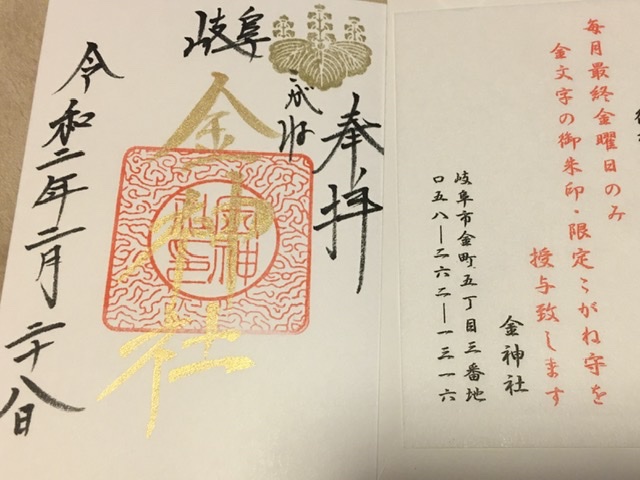 毎月最終金曜日のみ
金文字の御朱印・限定こがね守を
授与致します
金神社
岐阜市金町五丁目三番地
〇五八ー二六二ー一三一六
奉拝
岐阜
こがね
金神社
令和二年二月二十八日